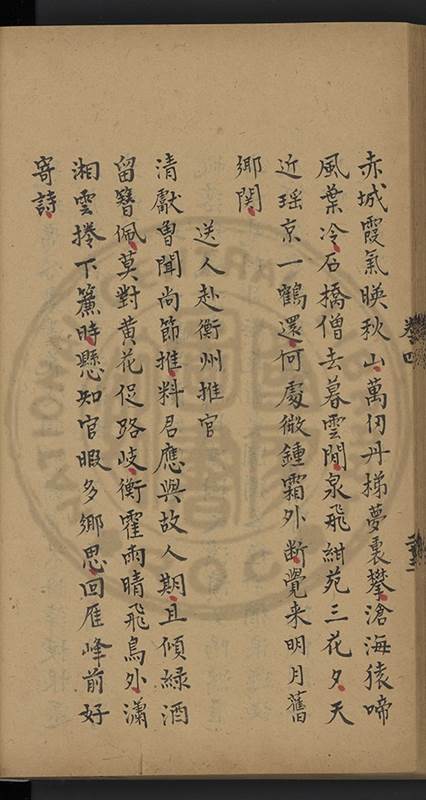 赤城霞氣暎秋山萬仞丹梯夢裏攀滄海猿啼
風葉冷石橋僧去暮雲閒泉飛紺苑三花夕天
近瑶京一鶴還何處微鍾霜外断覺来明月舊
鄉関
送人赴衡州推官
清獻曽聞尚節推料君應與故人期且傾緑酒
留簪佩莫對黄花促路歧衡霍雨晴飛鳥外瀟
湘雲捲下簾時懸知官暇多鄉思回雁峰前好
寄詩
卷四